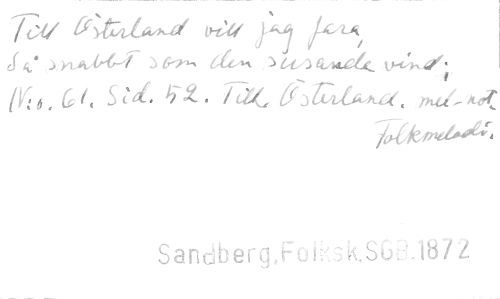 Till Österland vill jag fara,
Så snabbt som den susande vind;
N:o. 61. Sid. 52. Till Österland. mel-not.
Folkmelodi.
Sandberg,Folksk.SGB.1872